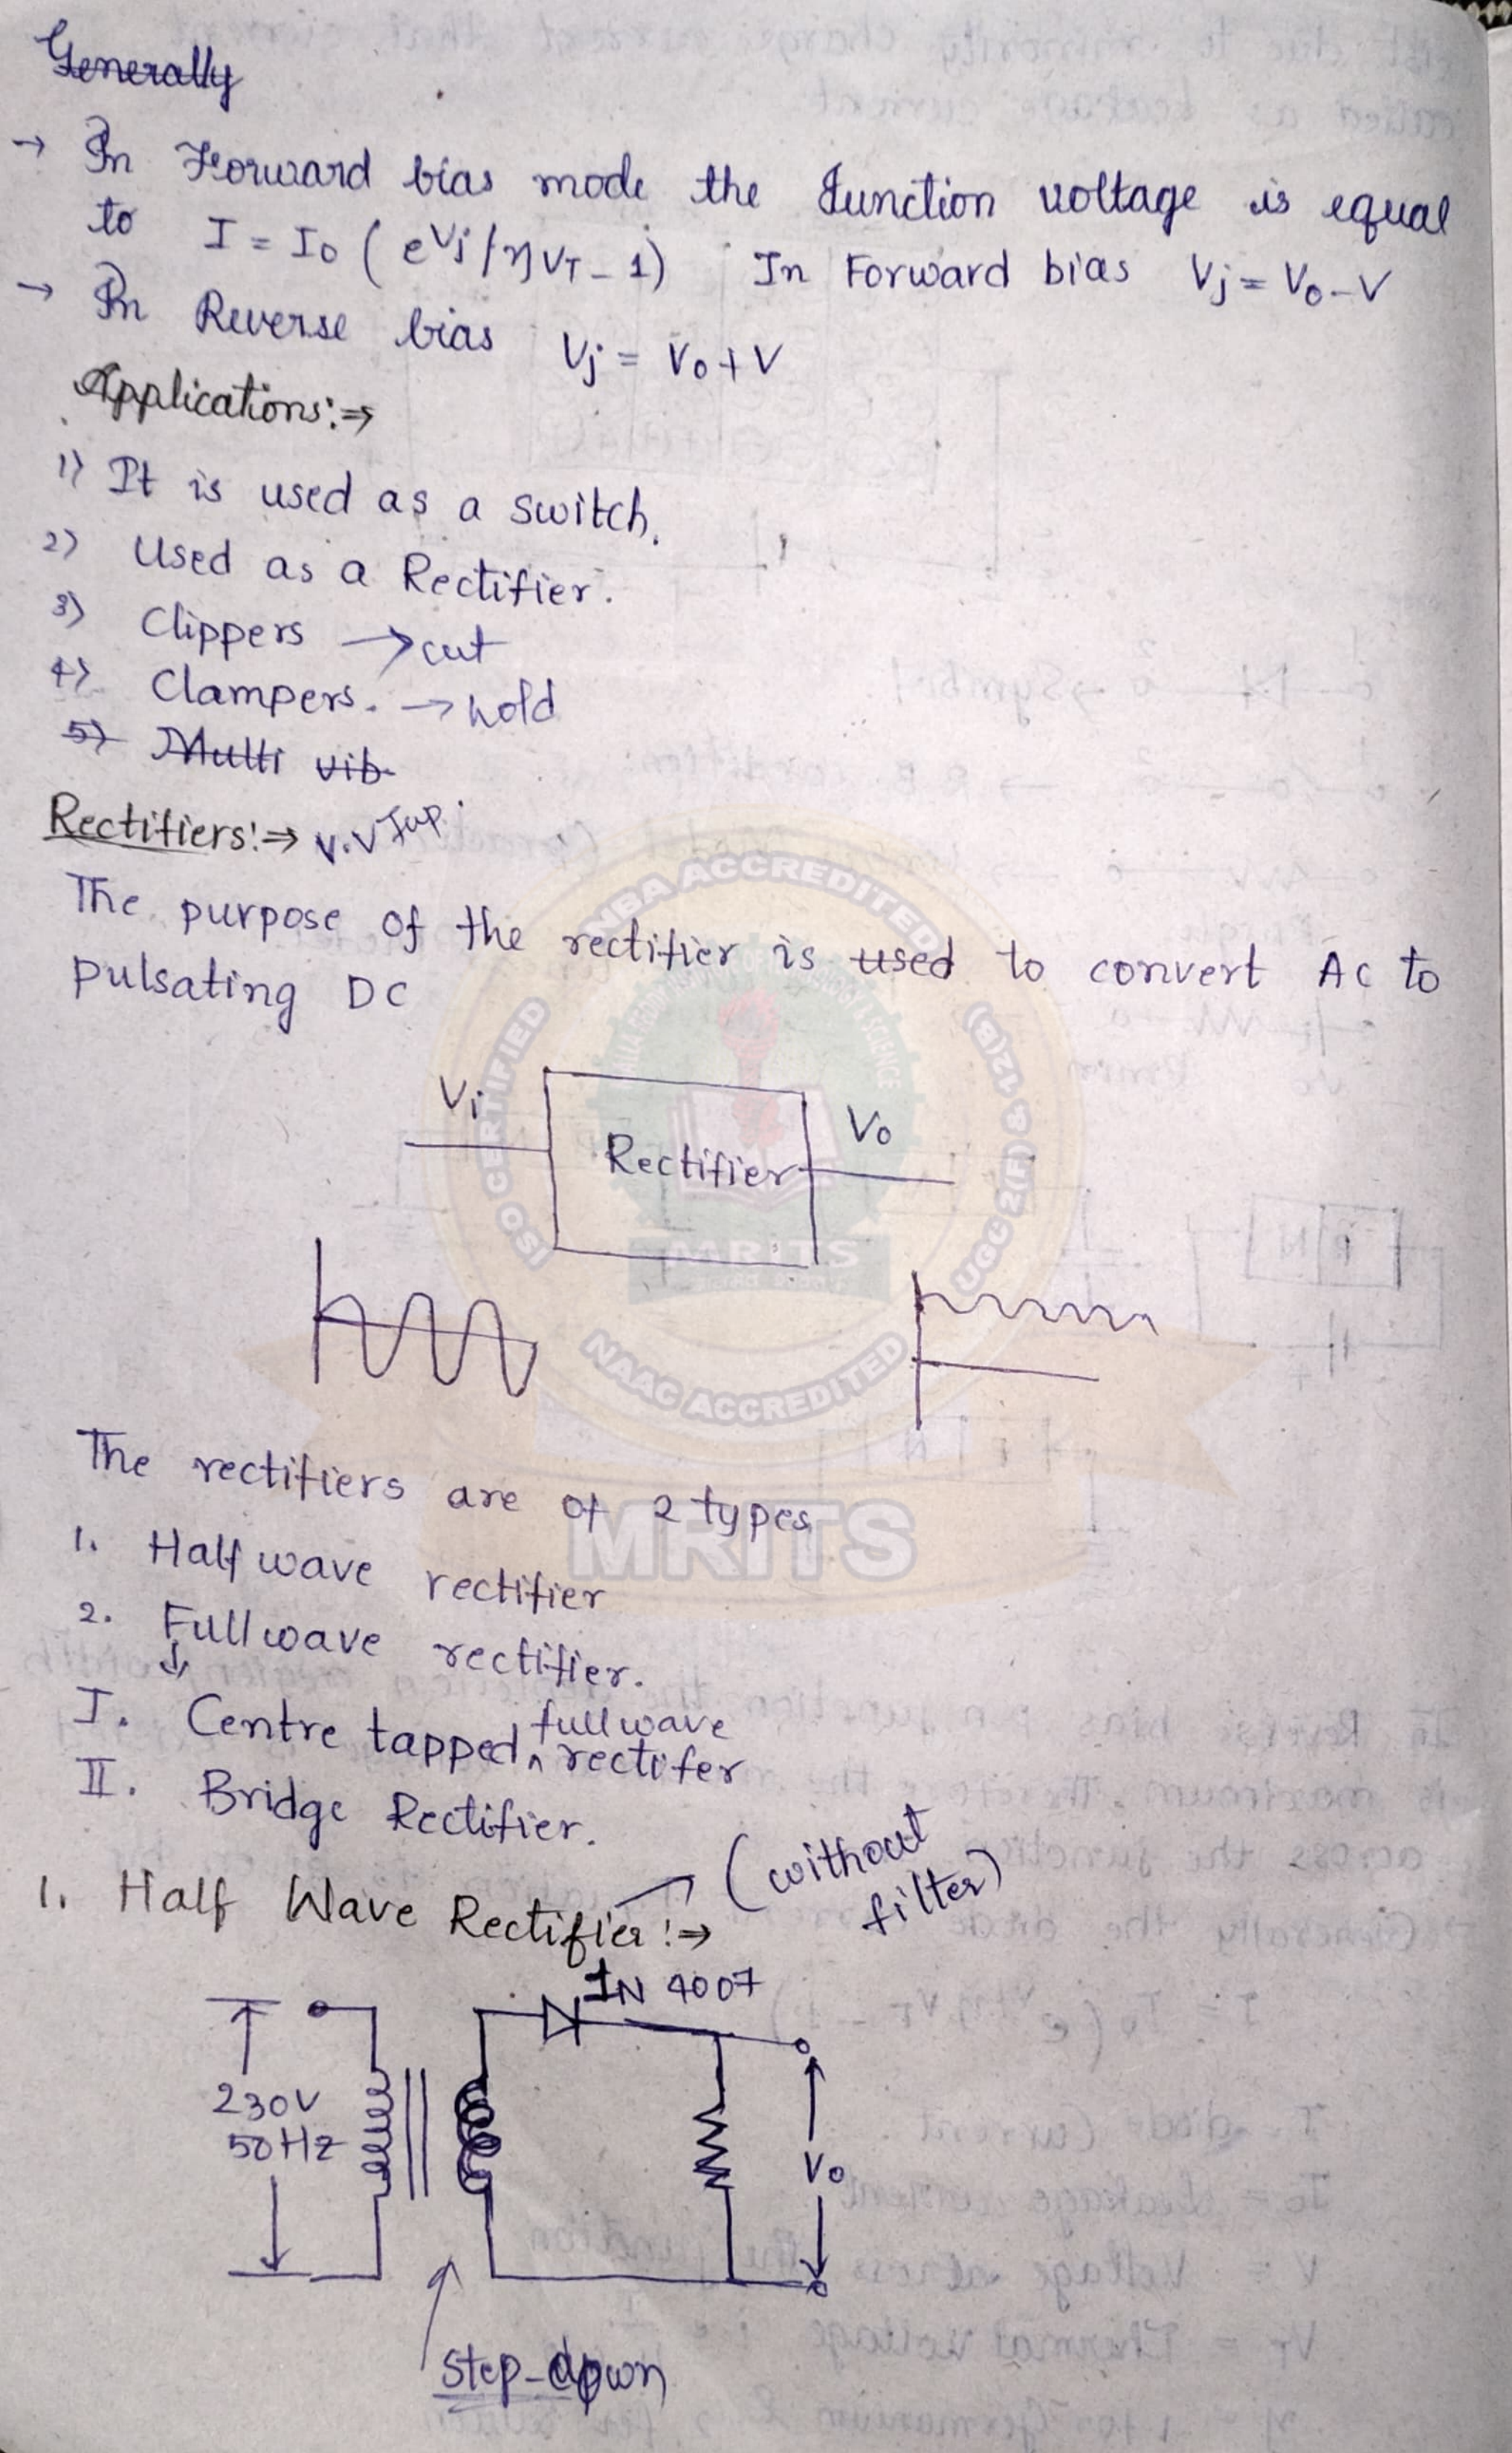 Generally
→ In Forward bias mode the Junction voltage is equal
to I = I₀ ( e^Vj/ηVT - 1) In Forward bias Vj = V₀ - V
→ In Reverse bias Vj = V₀ + V
Applications:⇒
1) It is used as a switch.
2) Used as a Rectifier.
3) Clippers → cut
4) Clampers. → hold
5) Multi vib
Rectifiers:⇒ V.V Imp.
The purpose of the rectifier is used to convert AC to
pulsating DC
Vi
Rectifier
Vo
The rectifiers are of 2 types
1. Half wave rectifier
2. Full wave rectifier.
↓
I. Centre tapped ^ full wave rectifer
II. Bridge Rectifier.
1. Half Wave Rectifier:⇒ → (without
filter)
IN 4007
230V
50Hz
Vo
step-down
NBA ACCREDITED
ISO CERTIFIED
UGC 2(F) & 12(B)
NAAC ACCREDITED
MRITS
MRITS